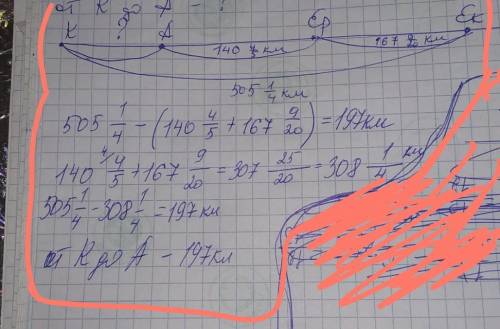 от К до А - ?
К ? А Ер Ек
140 4/5 км 167 9/20 км
505 1/4 км
505 1/4 - (140 4/5 + 167 9/20) = 197км
140 4/5 + 167 9/20 = 307 25/20 = 308 1/4 км
505 1/4 - 308 1/4 = 197 км
от К до А - 197км